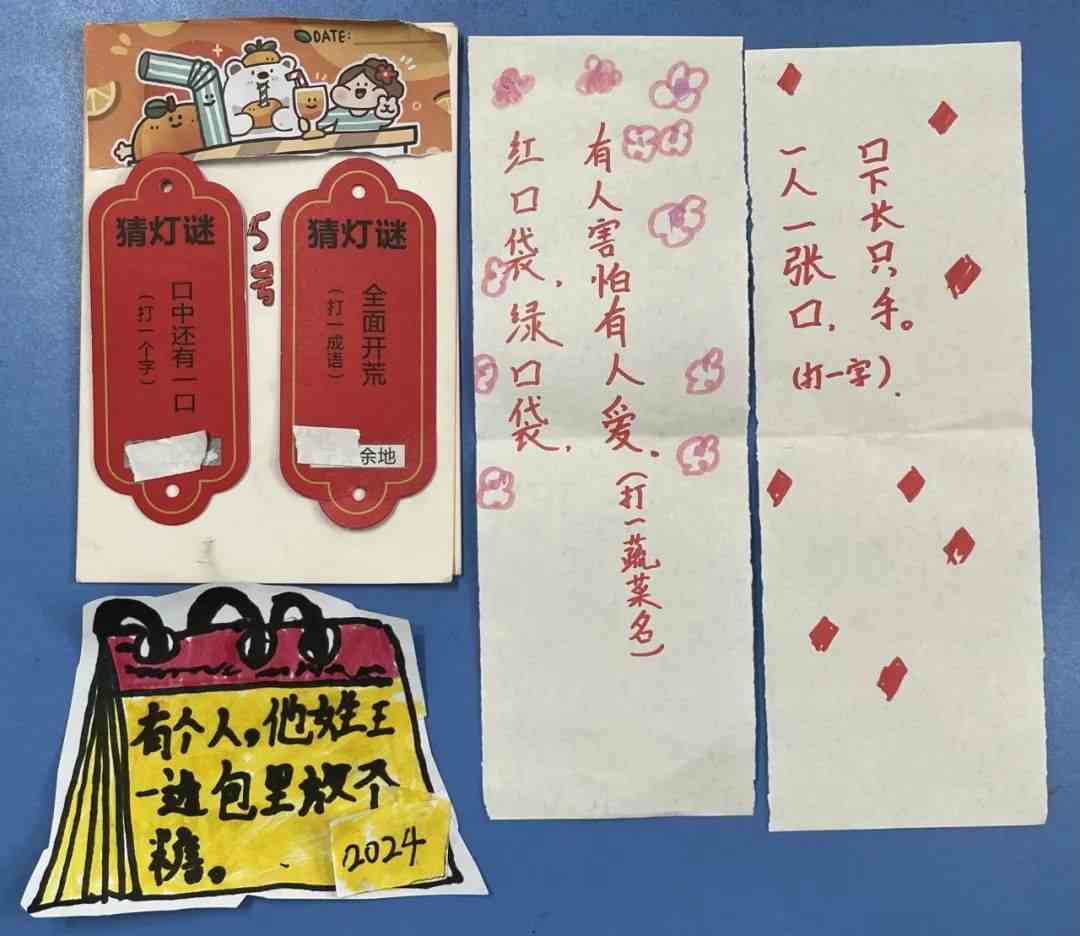 DATE:
5号
猜灯谜
口中还有一口
（打一个字）
猜灯谜
全面开荒
（打一成语）
余地
红口袋,绿口袋,
有人害怕有人爱。(打一蔬菜名)
一人一张口,
口下长只手。
(打一字).
有个人,他姓王
一边包里放个
糖。
2024